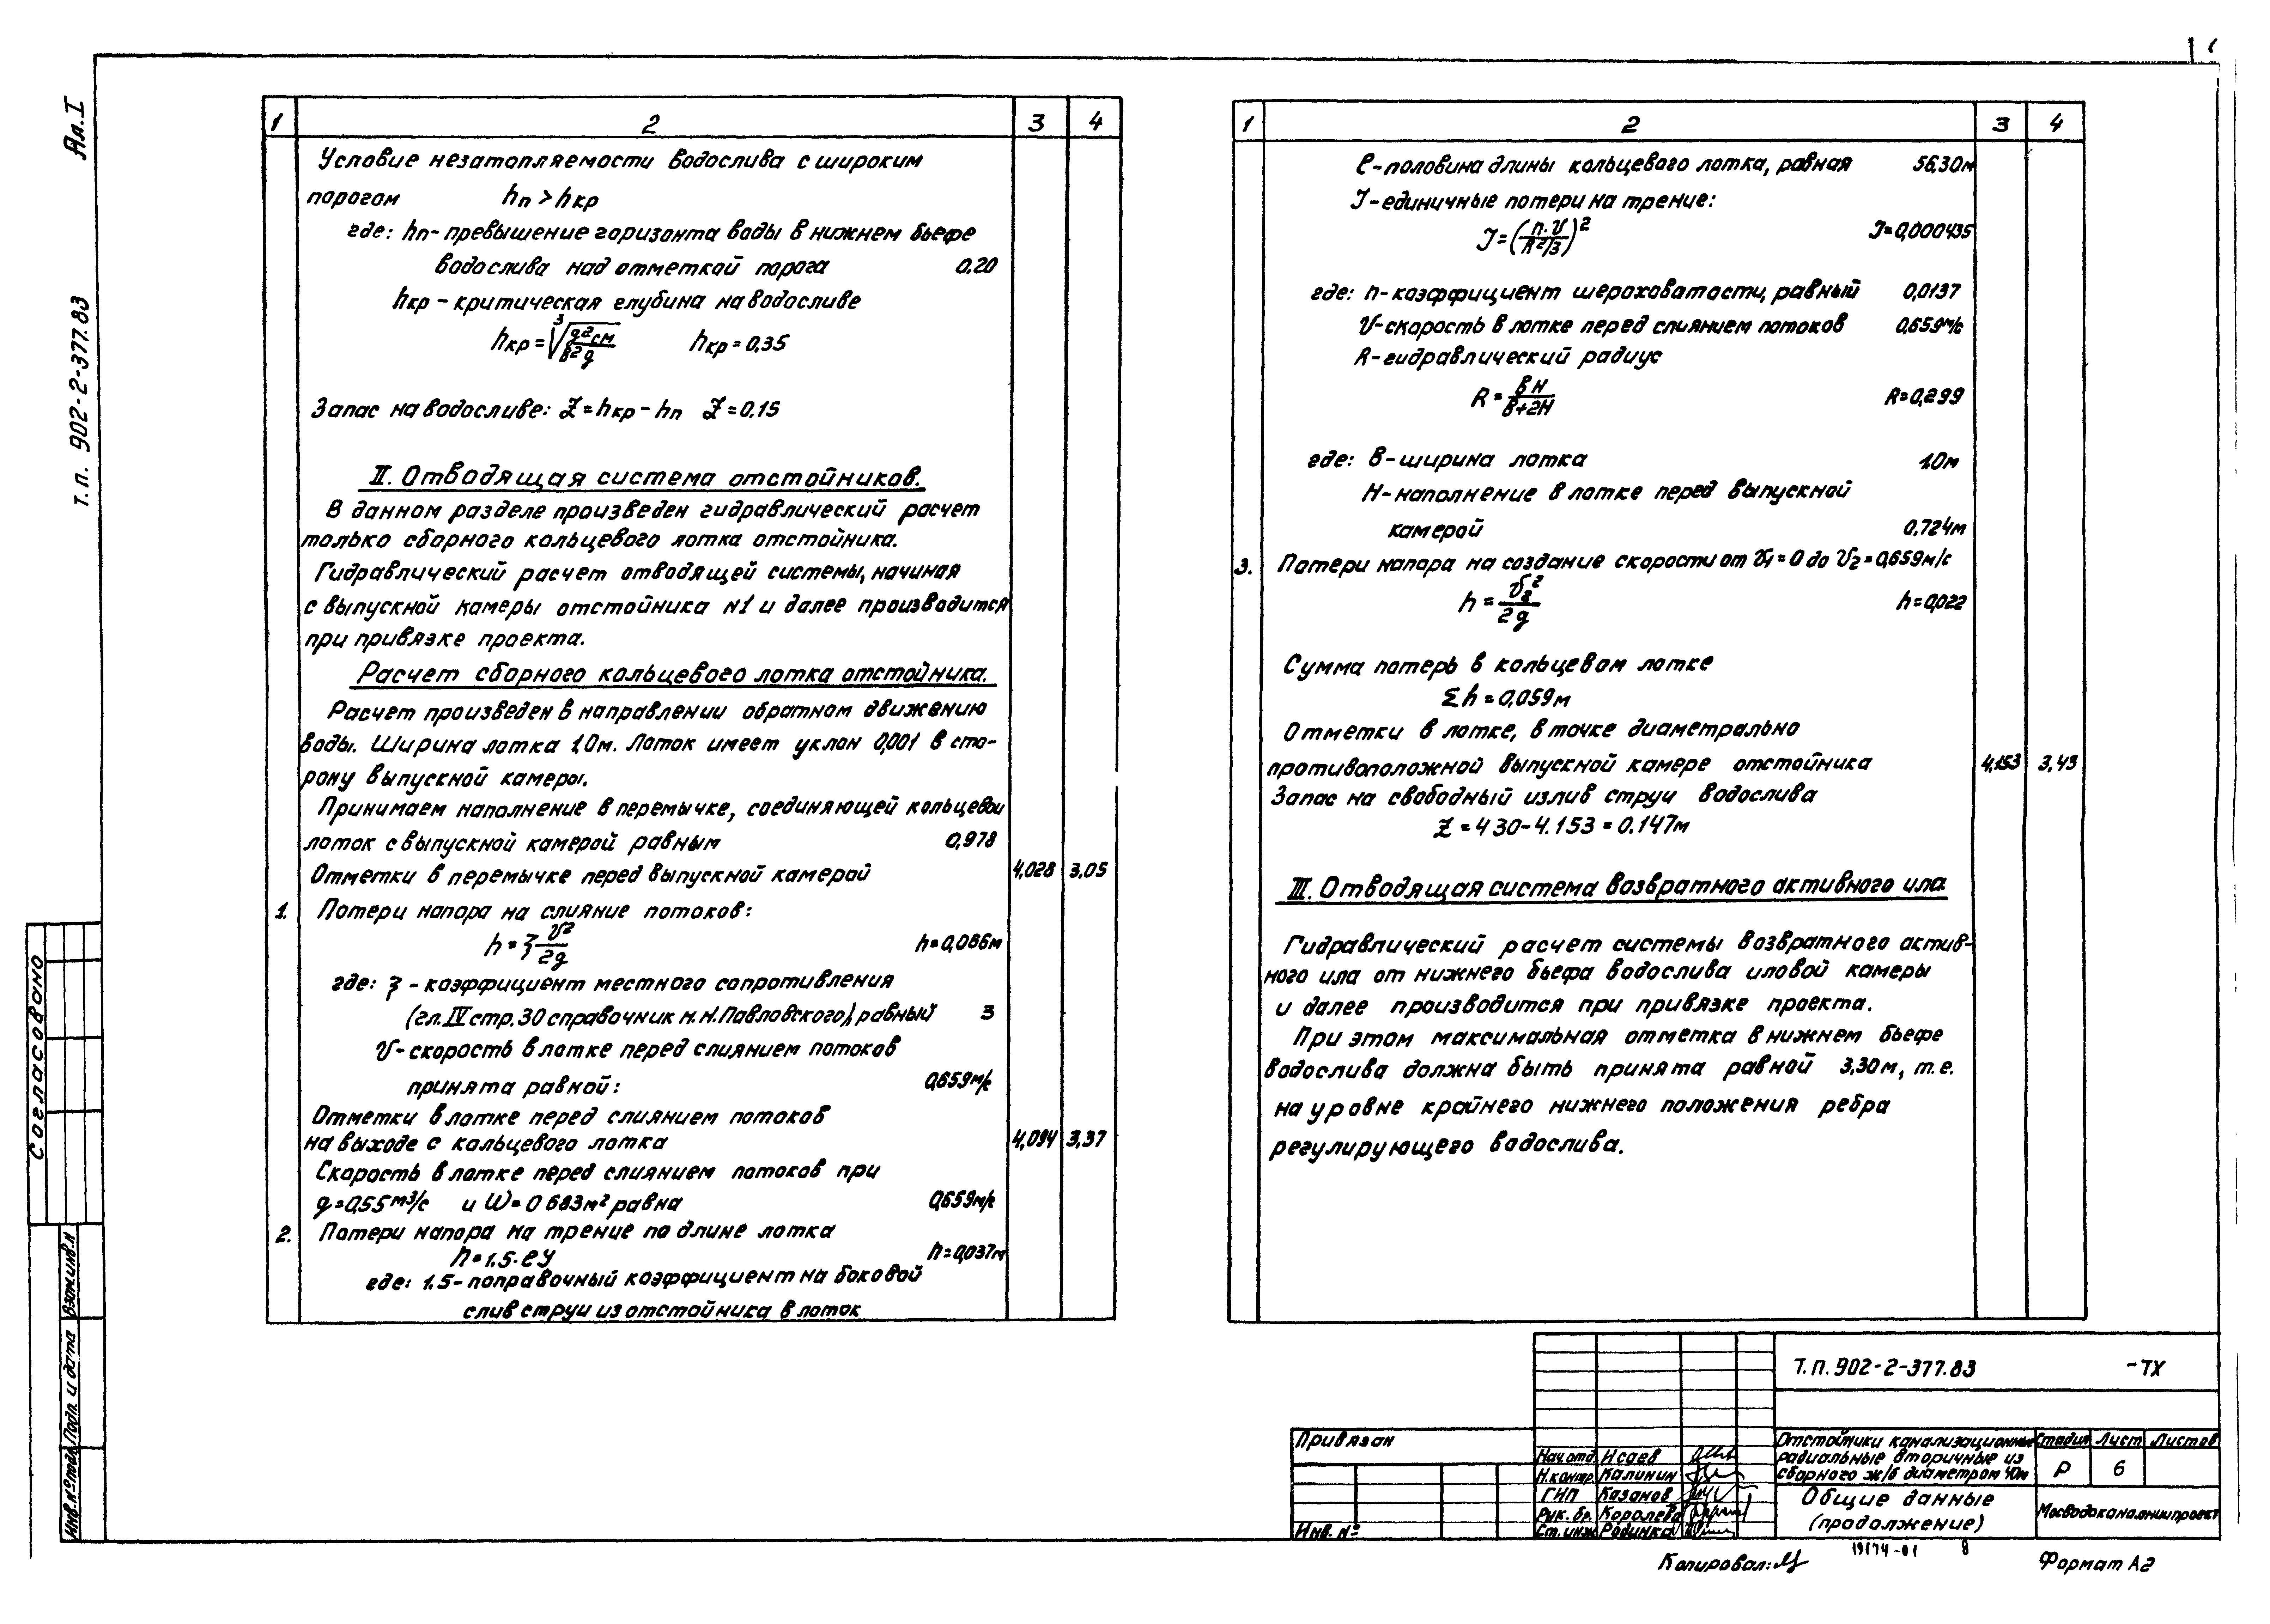 Ал. I
т.п. 902-2-377.83
1 2 3 4
Условие незатопляемости водослива с широким
порогом hп > hкр
где: hп- превышение горизонта воды в нижнем бьефе
водослива над отметкой порога 0.20
hкр - критическая глубина на водосливе
hкр = ∛(q²см / в²g) hкр = 0,35
Запас на водосливе: Z = hкр - hп Z = 0.15
II. Отводящая система отстойников.
В данном разделе произведен гидравлический расчет
только сборного кольцевого лотка отстойника.
Гидравлический расчет отводящей системы, начиная
с выпускной камеры отстойника N1 и далее производится
при привязке проекта.
Расчет сборного кольцевого лотка отстойника.
Расчет произведен в направлении обратном движению
воды. Ширина лотка 1,0м. Лоток имеет уклон 0,001 в сто-
рону выпускной камеры.
Принимаем наполнение в перемычке, соединяющей кольцевой
лоток с выпускной камерой равным 0,978
Отметки в перемычке перед выпускной камерой 4,028 3,05
1. Потери напора на слияние потоков:
h = ξ v²/2g h = 0,066м
где: ξ - коэффициент местного сопротивления
(гл. IV стр. 30 справочник Н.Н. Павловского), равный 3
V- скорость в лотке перед слиянием потоков
принята равной: 0,659м/с
Отметки в лотке перед слиянием потоков
на выходе с кольцевого лотка 4,094 3,37
Скорость в лотке перед слиянием потоков при
q = 0,55 м3/с и W = 0 683м² равна 0,659м/с
2. Потери напора на трение по длине лотка
h = 1.5·ℓJ h = 0,037м
где: 1.5 - поправочный коэффициент на боковой
слив струи из отстойника в лоток
1 2 3 4
ℓ- половина длины кольцевого лотка, равная 56,30м
J- единичные потери на трение:
J = (n·v / R2/3)² J = 0,000435
где: n- коэффициент шероховатости, равный 0,0137
V- скорость в лотке перед слиянием потоков 0,659м/с
R- гидравлический радиус
R = вН / в+2Н R = 0,299
где: в- ширина лотка 1.0м
Н- наполнение в лотке перед выпускной
камерой 0.724м
3. Потери напора на создание скорости от V1 = 0 до V2 = 0,659м/с
h = v2²/2g h = 0,022
Сумма потерь в кольцевом лотке
Σh = 0,059м
Отметки в лотке, в точке диаметрально
противоположной выпускной камере отстойника 4,153 3,43
Запас на свободный излив струи водослива
Z = 4 30 - 4.153 = 0.147м
III. Отводящая система возвратного активного ила
Гидравлический расчет системы возвратного актив-
ного ила от нижнего бьефа водослива иловой камеры
и далее производится при привязке проекта.
При этом максимальная отметка в нижнем бьефе
водослива должна быть принята равной 3,30м, т.е.
на уровне крайнего нижнего положения ребра
регулирующего водослива.
Согласовано
Взам. инв. N
Подп. и дата
Инв. № подл
Т.П. 902-2-377.83 -ТХ
Привязан
Инв. №
Нач. отд. Исаев
Н. контр. Калинин
ГИП Казанов
Рук. бр. Королева
Ст. инж. Родинка
Отстойники канализационные
радиальные вторичные из
сборного ж/б диаметром 40м
Стадия Лист Листов
Р 6
Общие данные
(продолжение)
Мосводоканалниипроект
19174-01 8
Копировал:
Формат А2